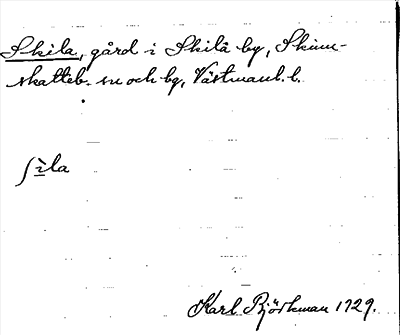 Skila, gård i Skila by, Skinn-
skatteb. sn och bg, Västmanl. l.
ʃìla
Karl Björkman 1929.